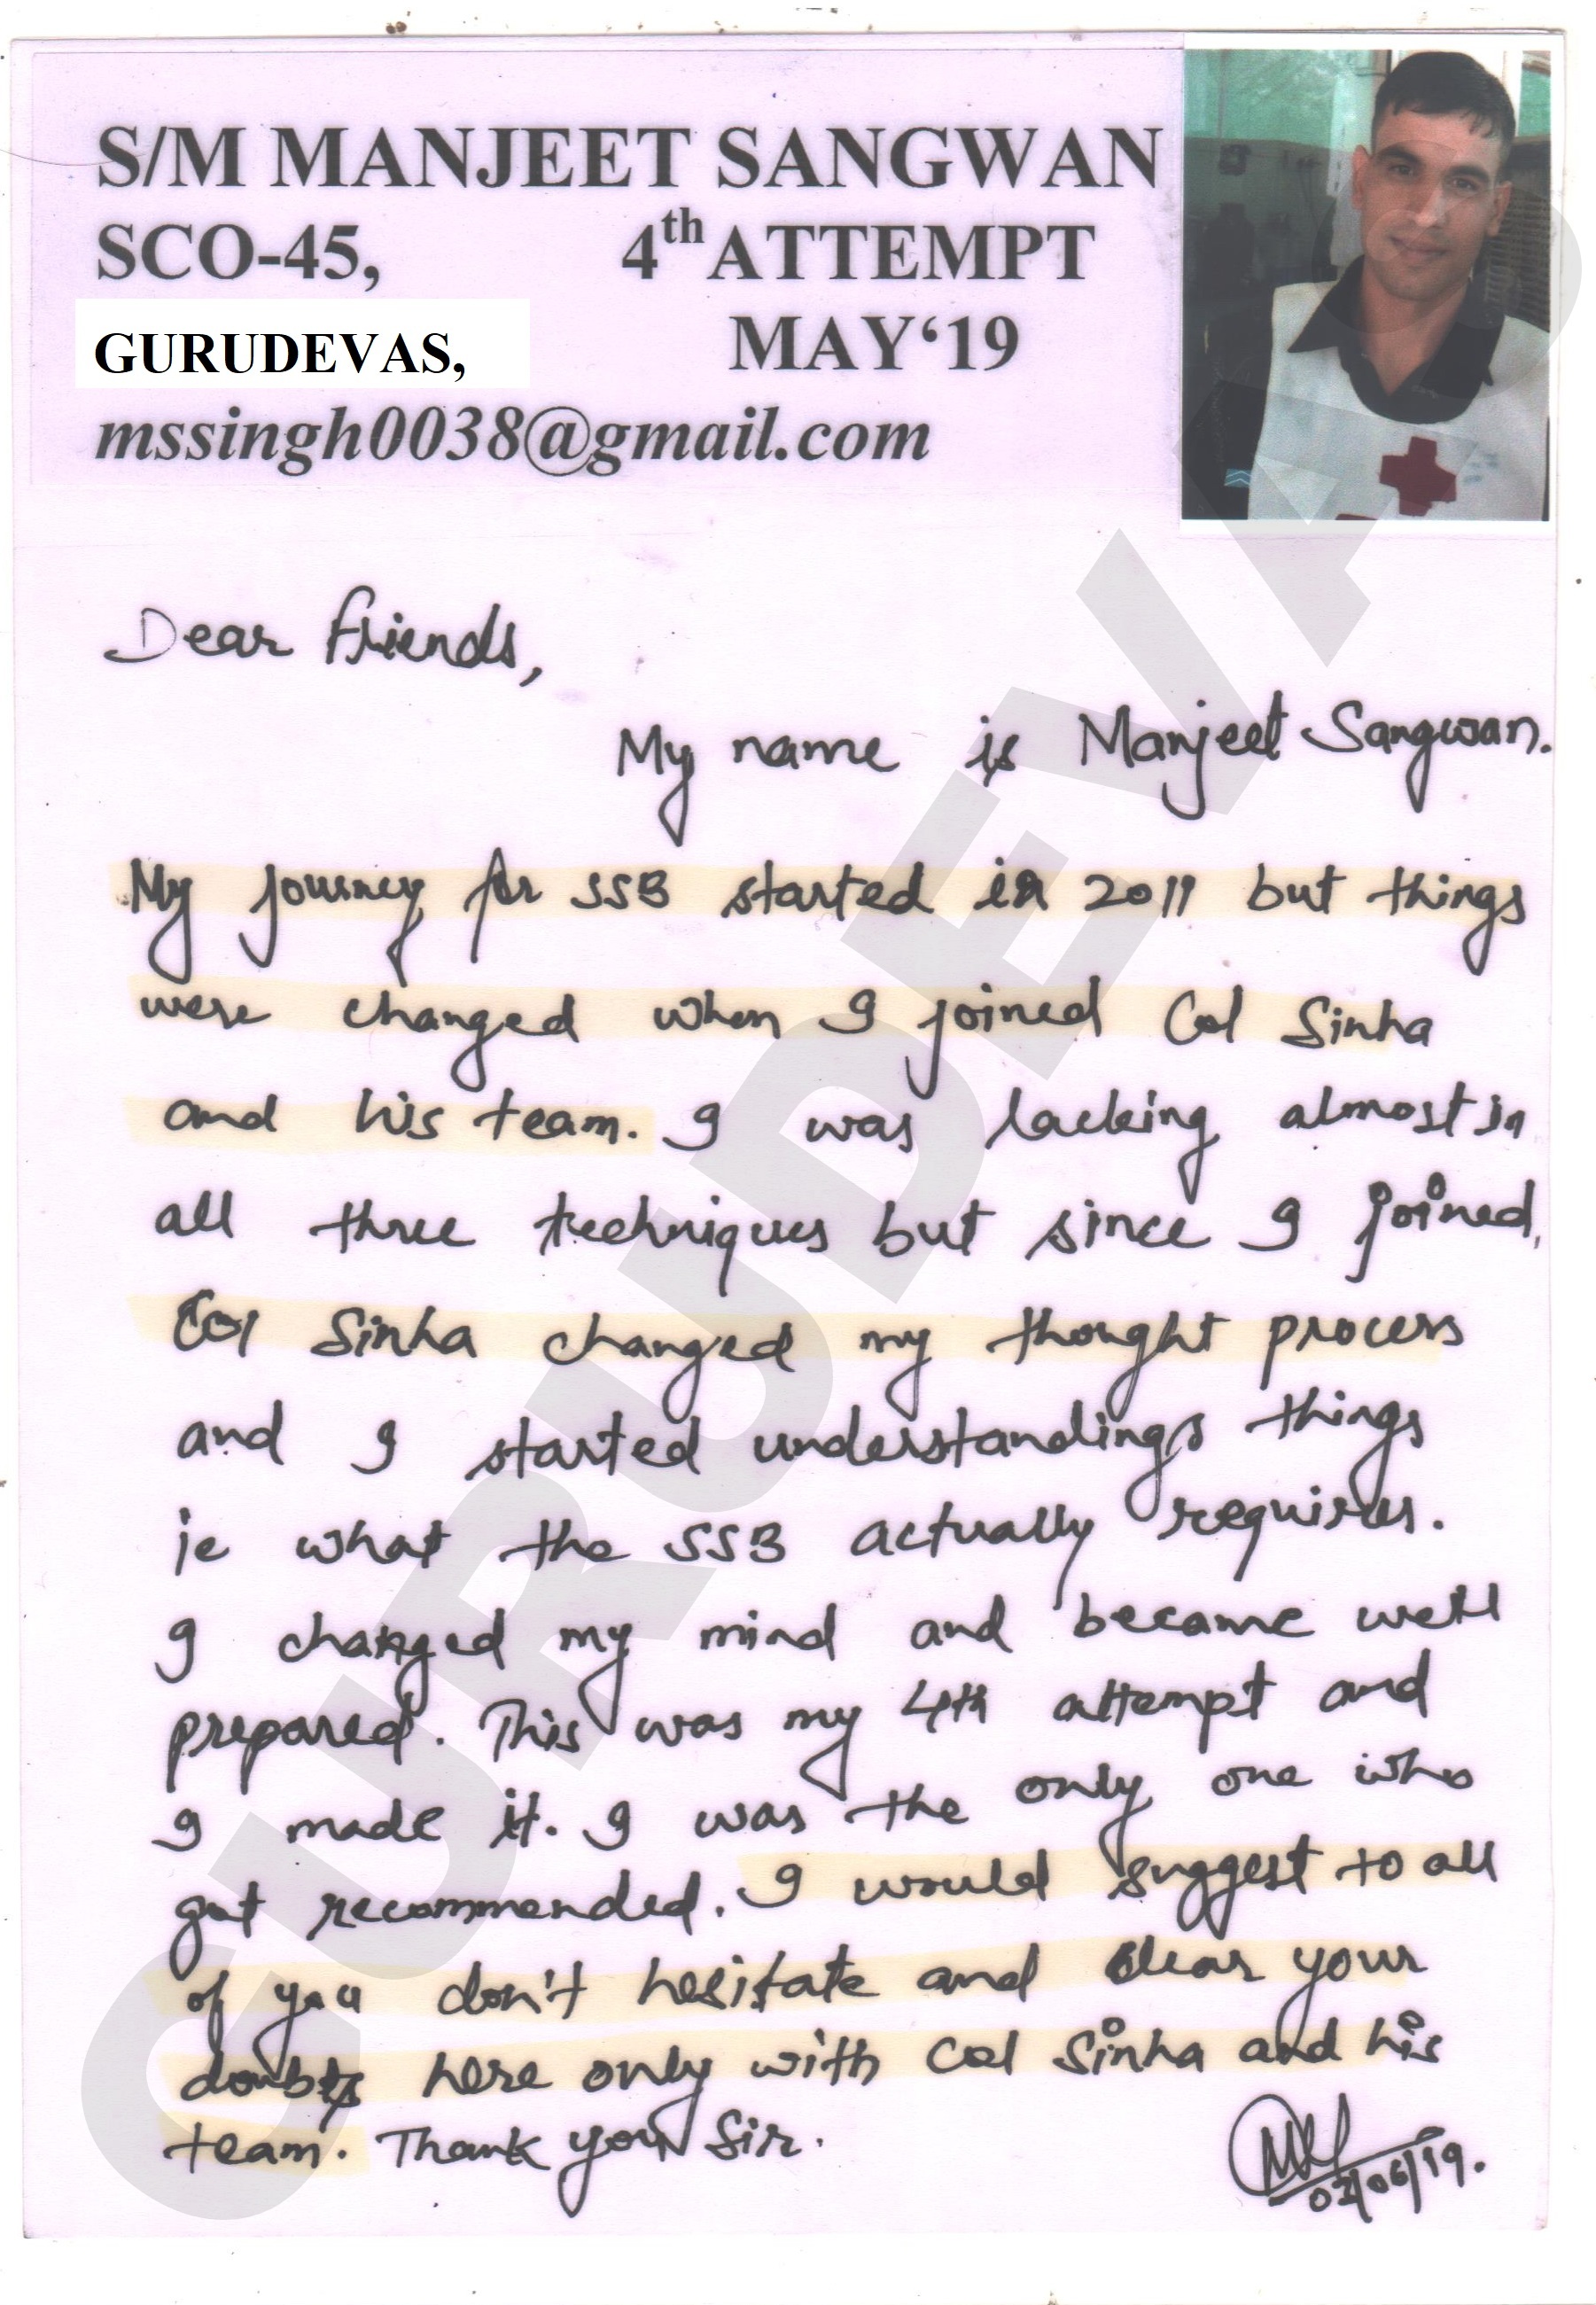 S/M MANJEET SANGWAN
SCO-45, 4th ATTEMPT
GURUDEVAS, MAY‘19
mssingh0038@gmail.com
Dear friends,
My name is Manjeet Sangwan.
My journey for SSB started in 2011 but things
were changed when I joined Col Sinha
and his team. I was lacking almost in
all three techniques but since I joined,
Col Sinha changed my thought process
and I started understandings things
ie what the SSB actually requires.
I changed my mind and became well
prepared. This was my 4th attempt and
I made it. I was the only one who
got recommended. I would suggest to all
of you don't hesitate and clear your
doubts here only with Col Sinha and his
team. Thank you Sir.
/06/19.
GURUDEVAS